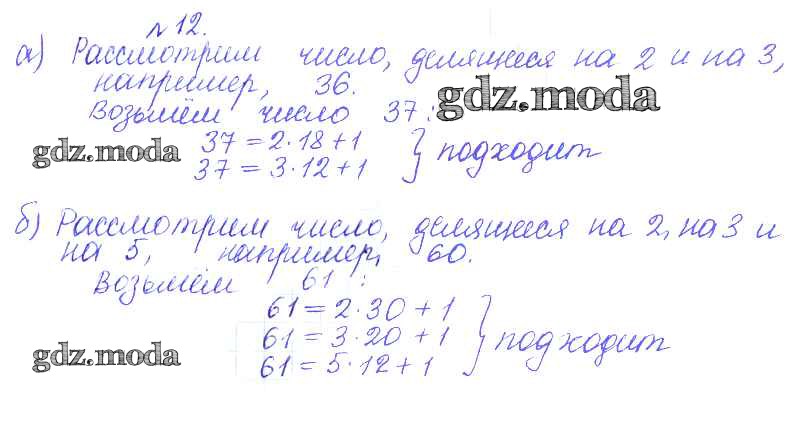 № 12.
а) Рассмотрим число, делящееся на 2 и на 3,
например, 36.
Возьмём число 37:
gdz.moda
37 = 2·18+1
37 = 3·12+1
} подходит
gdz.moda
б) Рассмотрим число, делящееся на 2, на 3 и
на 5, например, 60.
Возьмём 61:
61 = 2·30+1
61 = 3·20+1
61 = 5·12+1
} подходит
gdz.moda